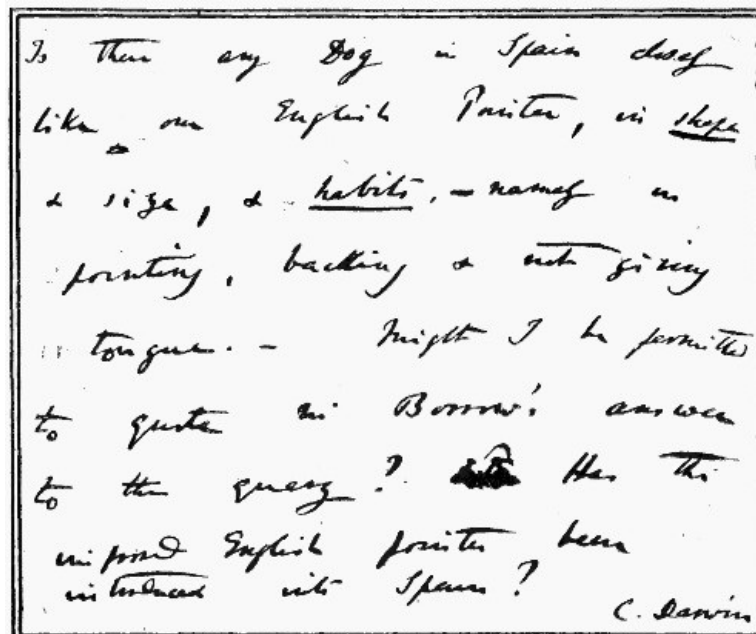 Is there any Dog in Spain closely
like our English Pointer, in shape
& size, & habits, — namely in
pointing, backing & not giving
tongue. — Might I be permitted
to quote Mr Borrow's answer
to the query? Has the
improved English pointer been
introduced into Spain?
C. Darwin